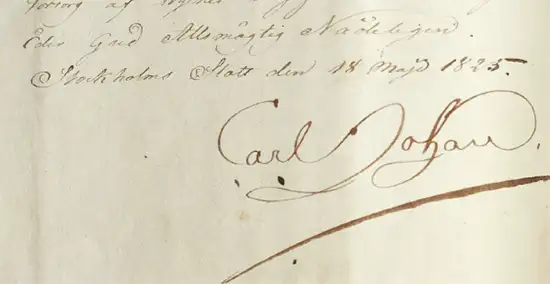 försorg af
Eder Gud Allsmägtig Nådeligen.
Stockholms Slott den 18 Majd 1825.
Carl Johan.